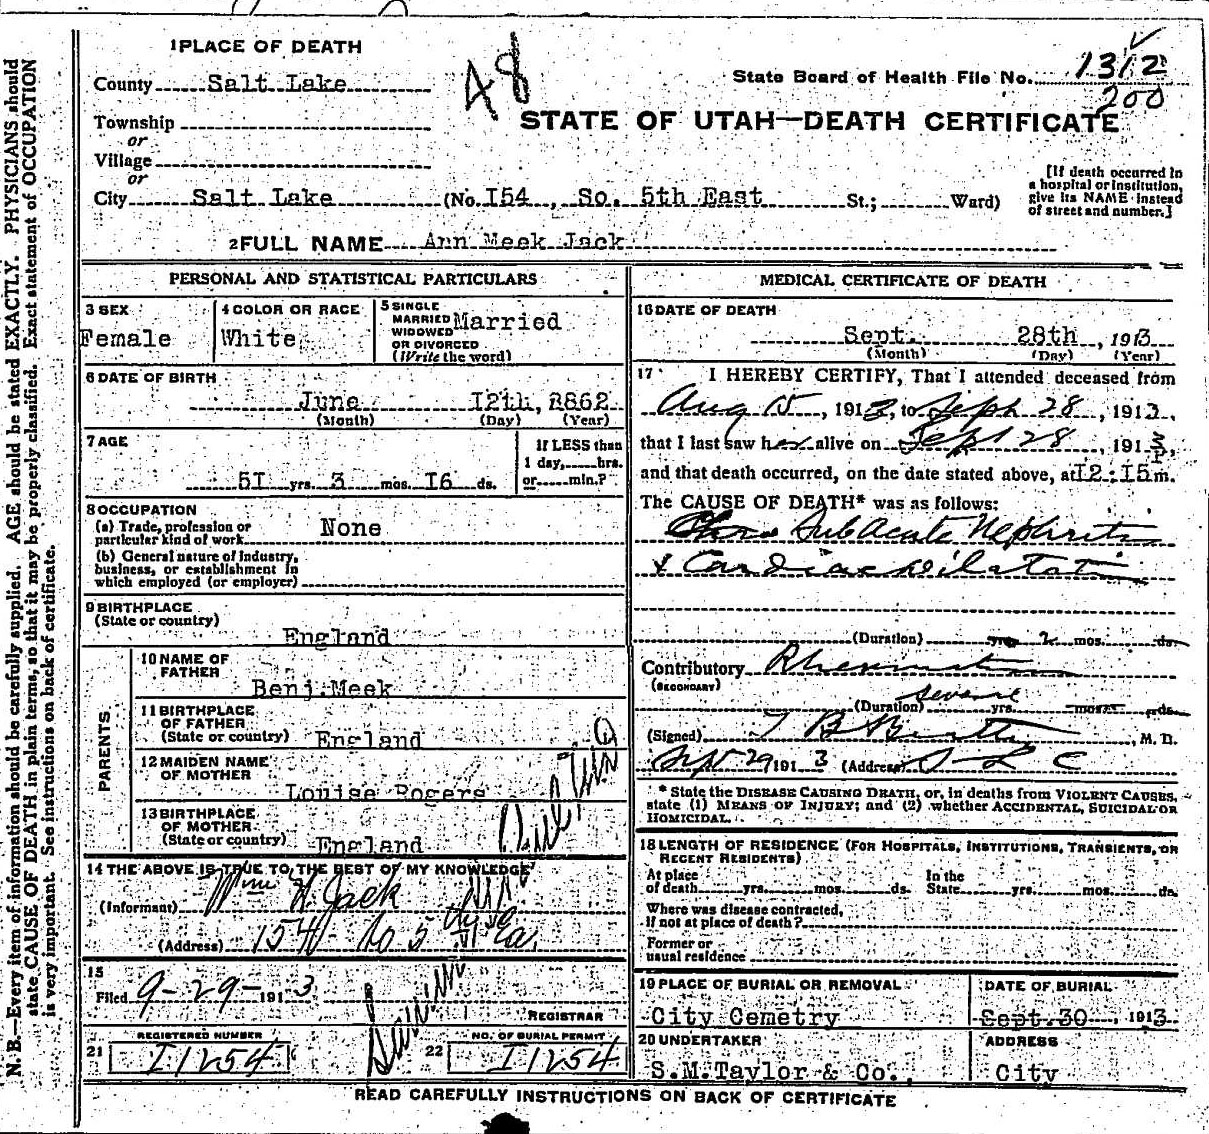 1 PLACE OF DEATH
County Salt Lake
48
State Board of Health File No. 1312
200
STATE OF UTAH—DEATH CERTIFICATE
Township
or
Village
or
City Salt Lake (No. I54, So. 5th East St.; Ward)
[If death occurred in
a hospital or institution,
give its NAME instead
of street and number.]
2 FULL NAME Ann Meek Jack
PERSONAL AND STATISTICAL PARTICULARS
3 SEX
Female
4 COLOR OR RACE
White
5 SINGLE
MARRIED
WIDOWED
OR DIVORCED
(Write the word)
Married
6 DATE OF BIRTH
June I2th, 2862
(Month) (Day) (Year)
7 AGE
5I yrs. 3 mos. I6 ds.
If LESS than
1 day, hrs.
or min.?
8 OCCUPATION
(a) Trade, profession or
particular kind of work
None
(b) General nature of Industry,
business, or establishment in
which employed (or employer)
9 BIRTHPLACE
(State or country)
England
PARENTS
10 NAME OF
FATHER
Benj. Meek
11 BIRTHPLACE
OF FATHER
(State or country) England
12 MAIDEN NAME
OF MOTHER
Louise Rogers
13 BIRTHPLACE
OF MOTHER
(State or country) England
14 THE ABOVE IS TRUE TO THE BEST OF MY KNOWLEDGE
(Informant) Wm H. Jack
(Address) 154 So 5th Ea.
15
Filed 9-29-1913
REGISTRAR
REGISTERED NUMBER
21 I1254
NO. OF BURIAL PERMIT
22 I1254
MEDICAL CERTIFICATE OF DEATH
16 DATE OF DEATH
Sept. 28th, 1913
(Month) (Day) (Year)
17 I HEREBY CERTIFY, That I attended deceased from
Aug 15, 1913, to Sept 28, 1913,
that I last saw her alive on Sept 28, 1913,
and that death occurred, on the date stated above, at I2:I5 P m.
The CAUSE OF DEATH* was as follows:
Subacute Nephritis
& Cardiac Dilatation
(Duration) yrs. 2 mos. ds.
Contributory Rheumatism
(SECONDARY)
several
(Duration) yrs. mos. ds.
(Signed) M. D.
Sept 29 1913 (Address) S L C
* State the DISEASE CAUSING DEATH, or, in deaths from VIOLENT CAUSES,
state (1) MEANS OF INJURY; and (2) whether ACCIDENTAL, SUICIDAL OR
HOMICIDAL.
18 LENGTH OF RESIDENCE (FOR HOSPITALS, INSTITUTIONS, TRANSIENTS, OR
RECENT RESIDENTS)
At place
of death yrs. mos. ds.
In the
State yrs. mos. ds.
Where was disease contracted,
if not at place of death?
Former or
usual residence
19 PLACE OF BURIAL OR REMOVAL
City Cemetry
DATE OF BURIAL
Sept. 30, 1913
20 UNDERTAKER
S.M. Taylor & Co.
ADDRESS
City
READ CAREFULLY INSTRUCTIONS ON BACK OF CERTIFICATE
N. B.—Every item of information should be carefully supplied. AGE should be stated EXACTLY. PHYSICIANS should
state CAUSE OF DEATH in plain terms, so that it may be properly classified. Exact statement of OCCUPATION
is very important. See instructions on back of certificate.